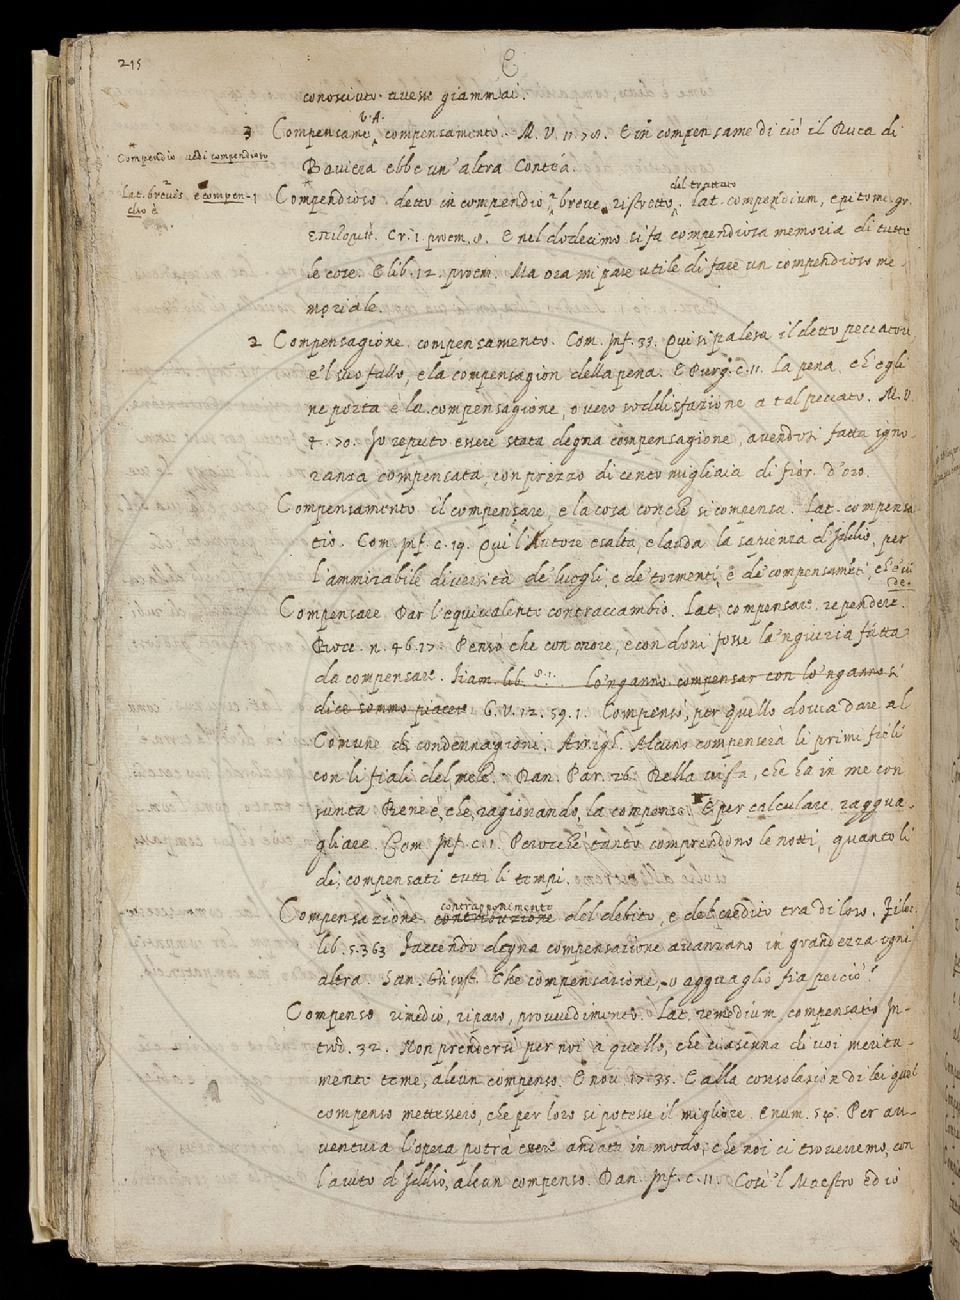 215
C
conosciuto avesse giammai.
3 Compensame, v.A. compensamento. M. V. 11. 78. E in compensame di ciò il Duca di
Compendio vedi compendioso
Baviera ebbe un'altra Contea.
Lat. brevis e compen-
dio è
1 Compendioso. detto in compendio, breve, ristretto. del trattato lat. compendium, epitome. gr.
ἐπιτομή. Cr. 1. proem. 8. E nel dodecimo si fa compendiosa memoria di tutte
le cose. E lib. 12. proem. Ma ora mi pare utile di fare un compendioso me-
moriale.
2 Compensagione. compensamento. Com. Inf. 33. Qui si palesa il detto peccatore,
e 'l suo fallo, e la compensagion della pena. E Purg. c. 11. La pena, ch'egli
ne porta è la compensagione, overo soddisfazione a tal peccato. M. V.
4. 70. Io reputo essere stata degna compensagione, avendosi fatta igno-
ranza compensata, con prezzo di cento migliaia di fior. d'oro.
Compensamento il compensare, e la cosa con che si compensa. Lat. compensa-
tio. Com. Inf. c. 19. Qui l'Autore esalta, e lauda la sapienza d'Iddio, per
l'ammirabile diversità de' luoghi, e de' tormenti, e de' compensamēti, ch'e' vi
de-
Compensare Dar l'equivalente contraccambio. Lat. compensare, rependere.
Bocc. n. 46. 17. Pensò che con onore, e con doni fosse la 'ngiuria fatta
da compensare. Fiam. lib. 8. 1. lo 'nganno compensar con lo 'nganno si
dice sommo piacere G. V. 12. 59. 1. Compensò, per quello dovea dare al
Comune di condennagioni. Arrigh. Alcuno compensera li primi fioli
con li fiali del mele. Dan. Par. 26. Della vista, che ha in me con
sunta Bene è, che, ragionando, la compense. E per calculare, raggua-
gliare. Com. Inf. c. 1. Perocché tanto comprendono le notti, quanto li
di; compensati tutti li tempi.
Compensazione. contribuzione contrapponimento del debito, e del credito tra di loro.
lib. 5. 363 Facendo degna compensazione avanzano in grandezza ogni
altra. San. Grisost. Che compensazione, o agguaglio fia perciò?
Compenso rimedio, riparo, provvedimento. Lat. remedium, compensatio In-
trod. 32. Non prendersi per noi a quello, che ciascuna di voi merita-
mente teme, alcun compenso. E nov. 17. 35. E alla consolazion di lei qual
compenso mettessero, che per loro si potesse il migliore. E num. 54. Per av-
ventura l'opera potrà essere andata in modo, che noi ci troveremo, con
l'aiuto d'Iddio, alcun compenso. Dan. Inf. c. 11. Così 'l Maestro ed io